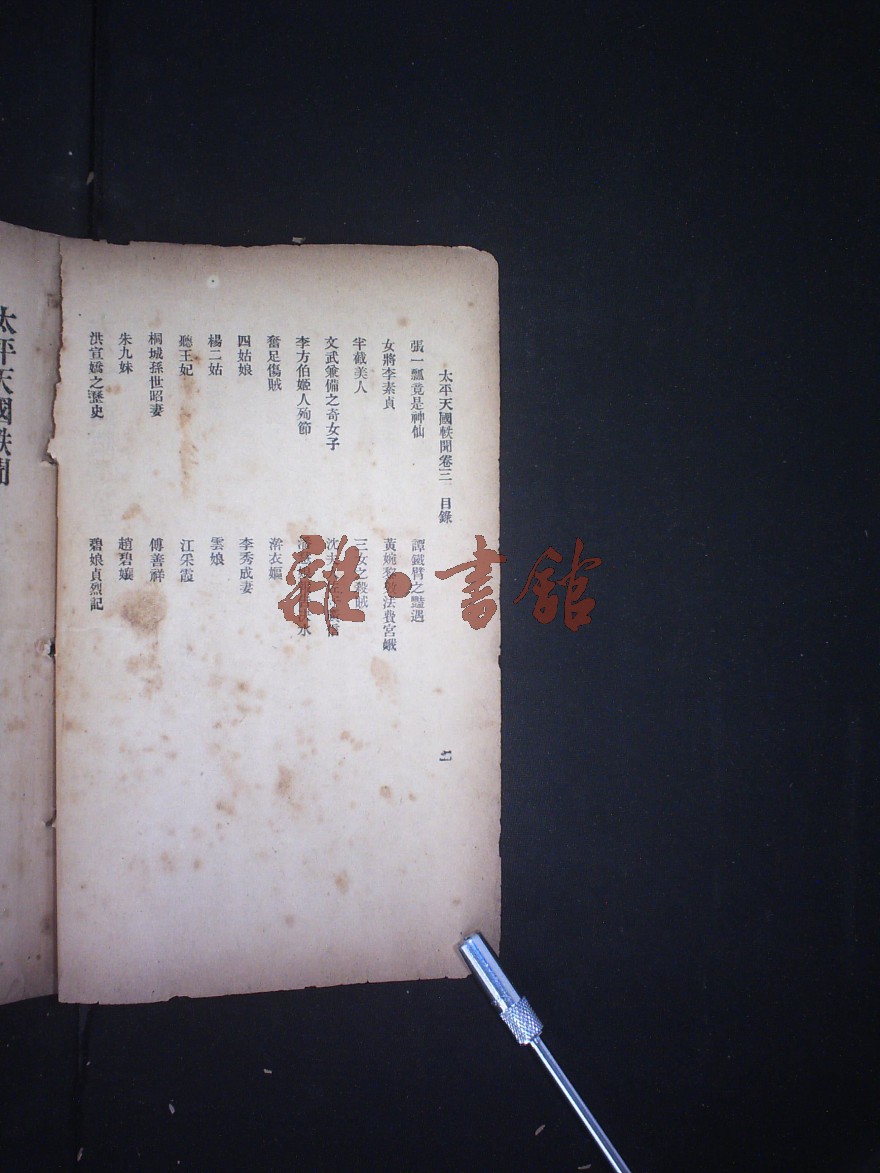 太平天國軼聞卷三 目錄
張一瓢竟是神仙
譚鐵臂之豔遇
女將李素貞
黃婉黎 法費宮娥
半截美人
三女之殺賊
文武兼備之奇女子
沈夫
李方伯姬人殉節
水
奮足傷賊
浣衣嫗
四姑娘
李秀成妻
楊二姑
雲娘
聽王妃
江采霞
桐城孫世昭妻
傅善祥
朱九妹
趙碧孃
洪宣嬌之歷史
碧娘貞烈記
太平天國軼聞
雜·書館